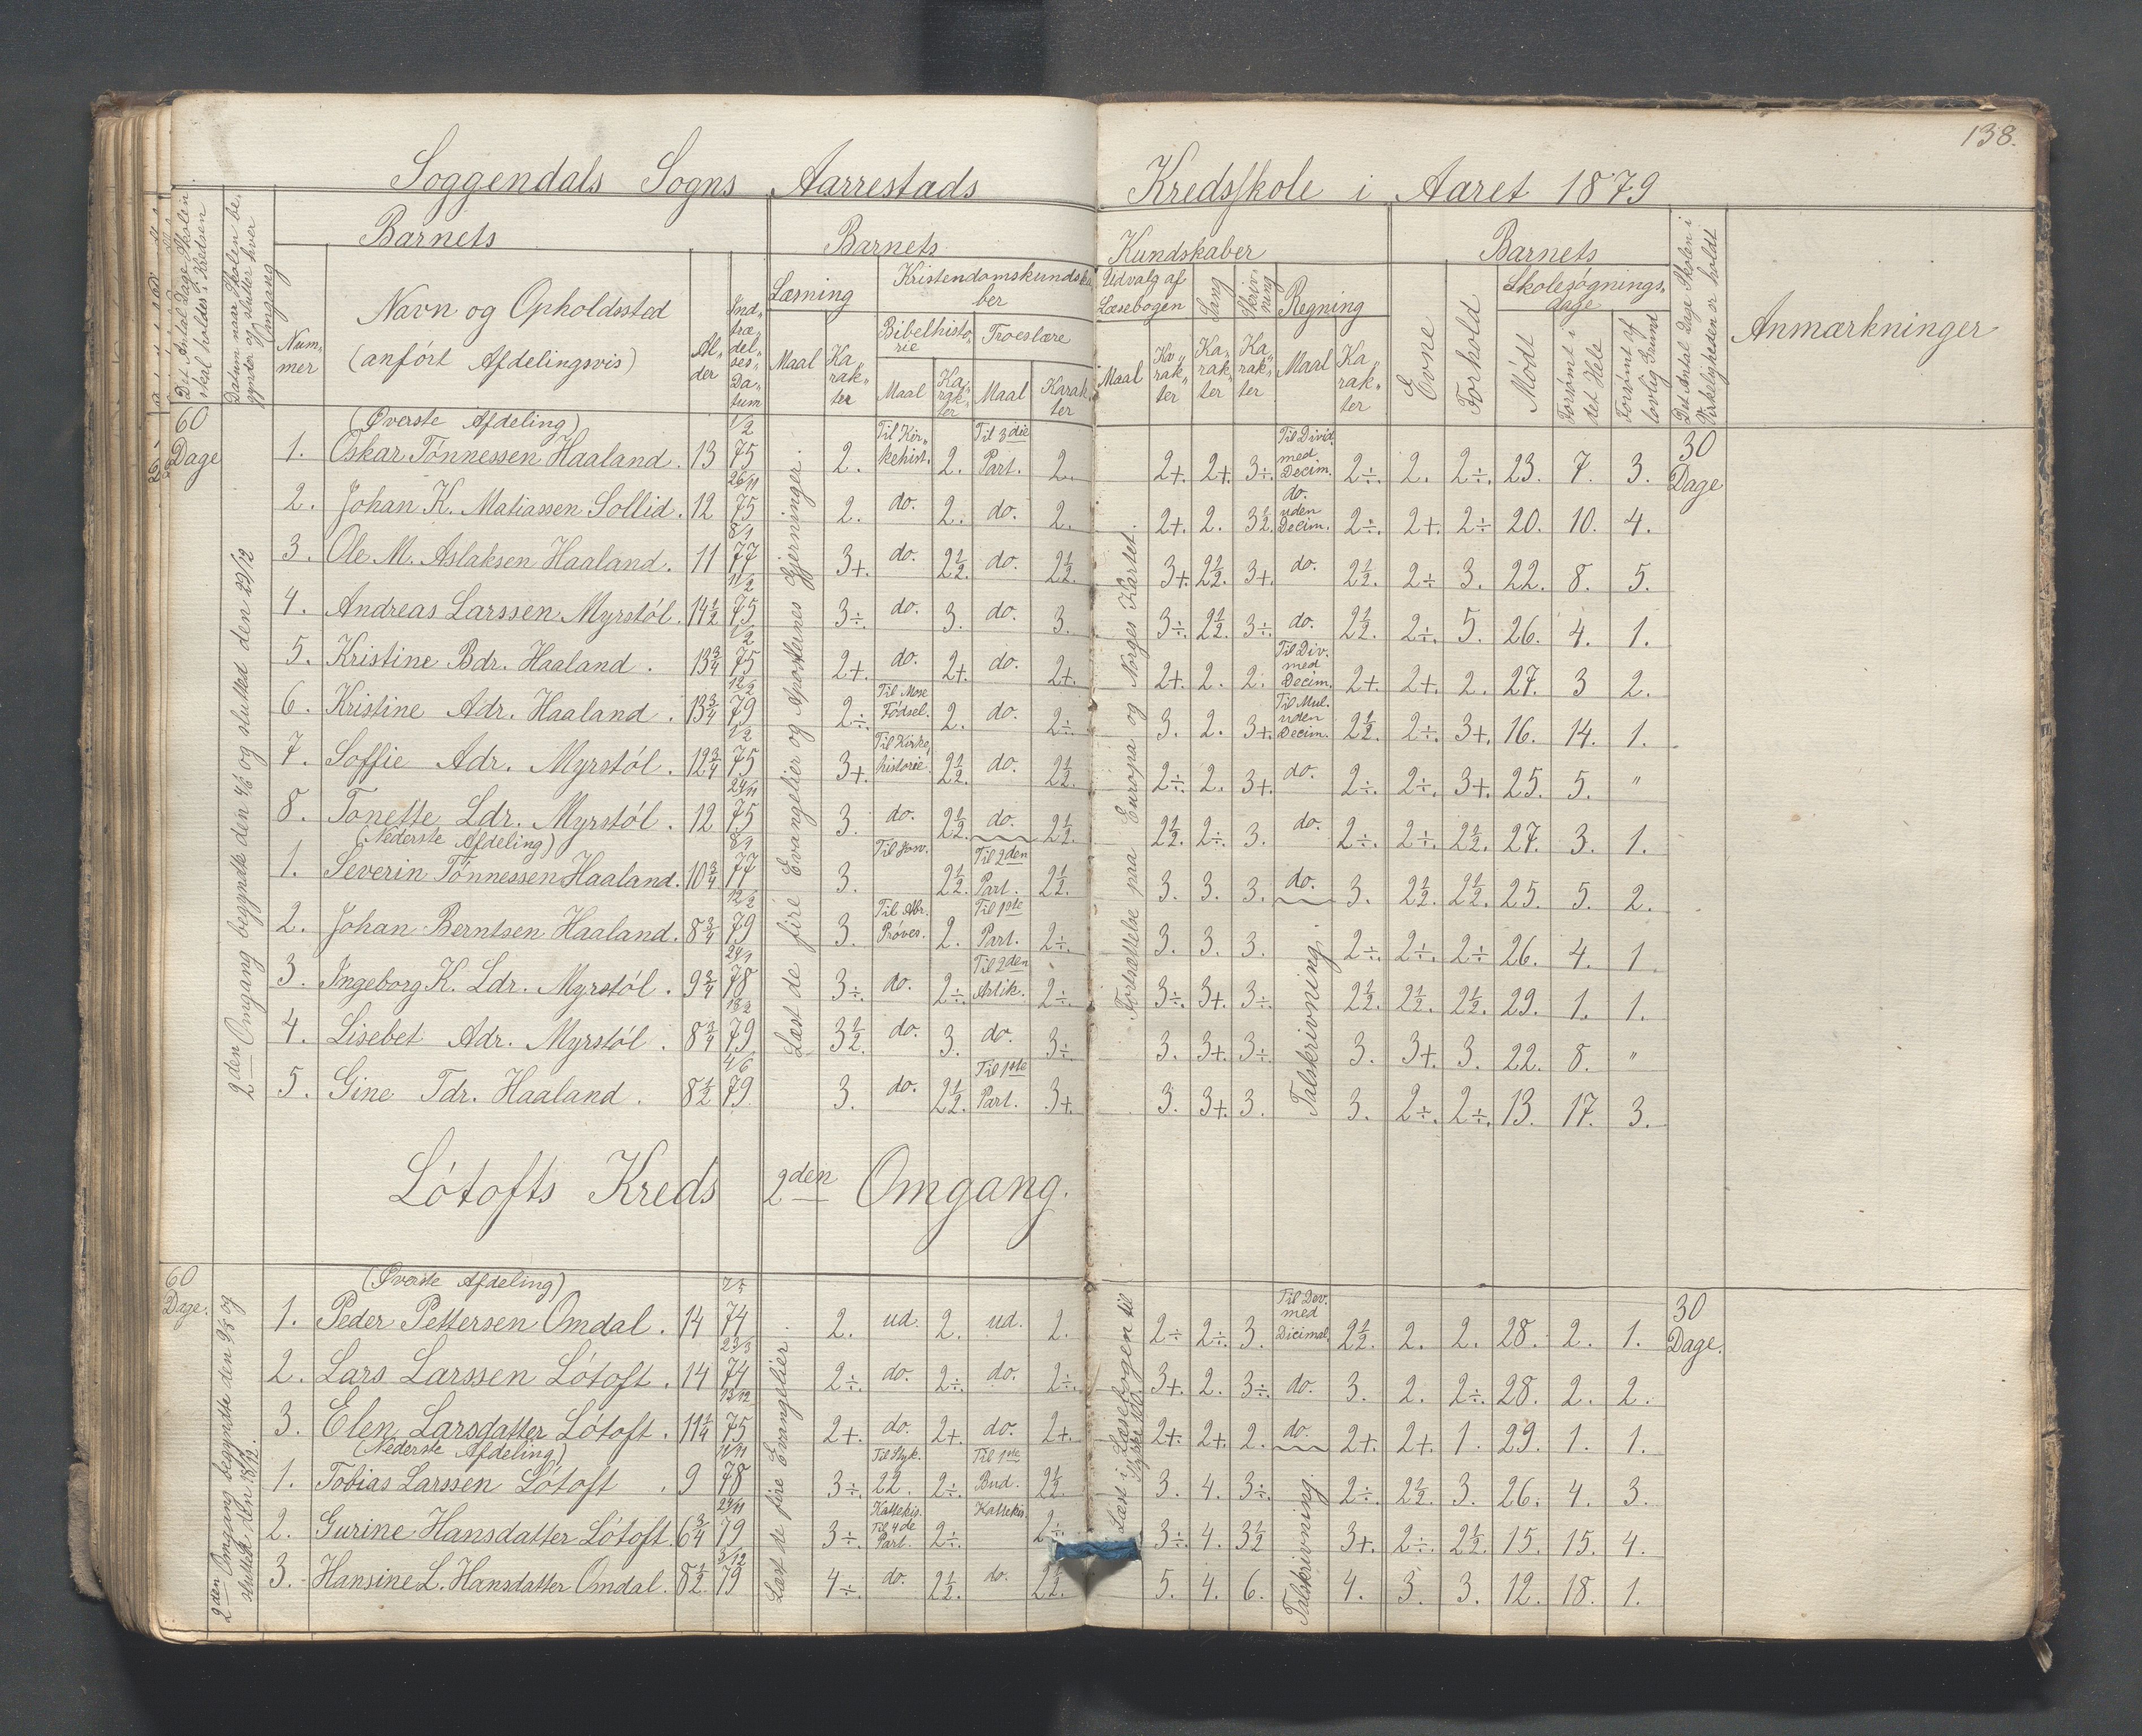 138.
Soggendals Sogns Aarrestads Kredsskole i Aaret 1879
Det Antal Dage Skolen skal holdes i Kredsen
Datum naar Skolen begynder og slutter hver Omgang
Barnets
Num-mer
Navn og Opholdssted
(anført Afdelingsvis)
Al-der
Ind-træ-del-ses-Da-tum
Barnets Kundskaber
Læsning
Maal
Ka-rak-ter
Kristendomskundskaber
Bibelhisto-rie
Maal
Ka-rak-ter
Troeslære
Maal
Karak-ter
Udvalg af Læsebogen
Maal
Ka-rak-ter
Sang
Ka-rak-ter
Skriv-ning
Ka-rak-ter
Regning
Maal
Ka-rak-ter
Barnets
Evne
Forhold
Skolesøgnings-dage
Mødt
Forsømt i det Hele
Forsømt af lovlig Grund
Det Antal Dage Skolen i Virkeligheden er holdt
Anmærkninger
60 Dage
2den Omgang begyndte den 4/6 og slutted den 22/12
Læst de fire Evangelier og Apostlenes Gjerninger.
Fortsættelse paa Europa og Norges Kartet
30 Dage
(Øverste Afdeling)
1. Oskar Tønnessen Haaland. 13 1/2 75 2. Til Kir-kehist. 2. Til 3die Part. 2. 2+. 2+. 3÷. Til Divid. med Decim. 2÷. 2. 2÷. 23. 7. 3.
2. Johan K. Matiassen Sollid. 12 26/11 75 2. do. 2. do. 2. 2+. 2. 3½. do. uden Decim. 2÷. 2+. 2÷ 20. 10. 4.
3. Ole M. Aslaksen Haaland. 11 8/1 77 3+. do. 2½. do. 2½. 3+. 2½. 3+. do. 2½. 2÷ 3. 22. 8. 5.
4. Andreas Larssen Myrstøl. 14½ 1/2 75 3÷. do. 3. do. 3. 3÷. 2½. 3÷. do. 2½. 2÷. 5. 26. 4. 1.
5. Kristine Bdr. Haaland. 13¾ 1/2 75 2+. do. 2+. do. 2+. 2+. 2. 2. Til Div. med Decim. 2+. 2+. 2. 27. 3 2.
6. Kristine Adr. Haaland. 13¾ 12/2 79 2÷. Til Mose Fødsel. 2. do. 2÷. 3. 2. 3+. Til Mul. uden Decim. 2½. 2÷. 3+. 16. 14. 1.
7. Soffie Adr. Myrstøl. 12¾ 1/2 75 3+. Til Kirke-historie. 2½. do. 2½. 2÷. 2. 3+. do. 2÷. 2÷. 3+. 25. 5. "
8. Tonette Ldr. Myrstøl. 12 24/11 75 3. do. 2½. do. 2½. 2½. 2÷. 3. do. 2÷. 2÷. 2½. 27. 3. 1.
(Nederste Afdeling)
1. Severin Tønnessen Haaland. 10¾ 8/1 77 3. 2½. Til 2den Part. 2½. 3. 3. 3. do. 3. 2½. 2½. 25. 5. 2.
2. Johan Berntsen Haaland. 8¾ 12/2 79 3. Til Abr. Prøves. 2. Til 1ste Part. 2÷. 3. 3. 3. 2÷. 2÷. 2÷ 26. 4. 1.
3. Ingeborg K. Ldr. Myrstøl. 9¾ 78 3÷. do. 2÷. Til 2den Artik. 2÷. 3÷. 3+. 3÷. 2½. 2½. 2½. 29. 1. 1.
4. Lisebet Adr. Myrstøl. 8¾ 79 3½. do. 3. do. 3÷. 3. 3+. 3÷. 3. 3+. 3. 22. 8. "
5. Gine Tdr. Haaland. 8½ 4/6 79. 3. do. 2½. Til 1ste Part. 3+. 3. 3+. 3. 3. 2÷. 2÷. 13. 17. 3.
Talskrivning.
Løtofts Kreds 2den Omgang.
60 Dage.
2den Omgang begyndte den og sluttet den 18/12.
Læst de fire Evangelier.
Læst i Læsebogen til
30 Dage.
(Øverste Afdeling)
1. Peder Pettersen Omdal. 14 74 2. ud. 2. ud. 2. 2÷ 2÷. 3. Til Dev. med Dicimal. 2½. 2. 2. 28. 2. 1.
2. Lars Larssen Løtoft. 14 23/3 74 2÷. do. 2÷. do. 2÷. 3+. 2. 3÷. do. 3. 2. 2÷. 28. 2. 2.
3. Elen Larsdatter Løtoft. 11¼ 13/12 75 2+. do. 2+. do. 2+. 2+. 2+. 2. do. 2+. 2+. 1. 29. 1. 1.
(Nederste Afdeling)
1. Tobias Larssen Løtoft. 9 11/11 78 3÷. Til Styk. 22. 2÷. Til 1ste Bud. 2½. 3. 4. 3÷. 2÷. 2½. 3. 26. 4. 3.
2. Gurine Hansdatter Løtoft. 6¾ 24/11 79 3÷. Kattekis. Til 4de Part. 2÷. Kattekis. 2÷. 3÷. 4. 3½ 3+. 2÷. 2½. 15. 15. 4.
3. Hansine L. Hansdatter Omdal. 8½ 3/12 79 4÷. do. 2½. do. 2½. 5. 4. 6. 4. 3. 3. 12. 18. 1.
Talskrivning.